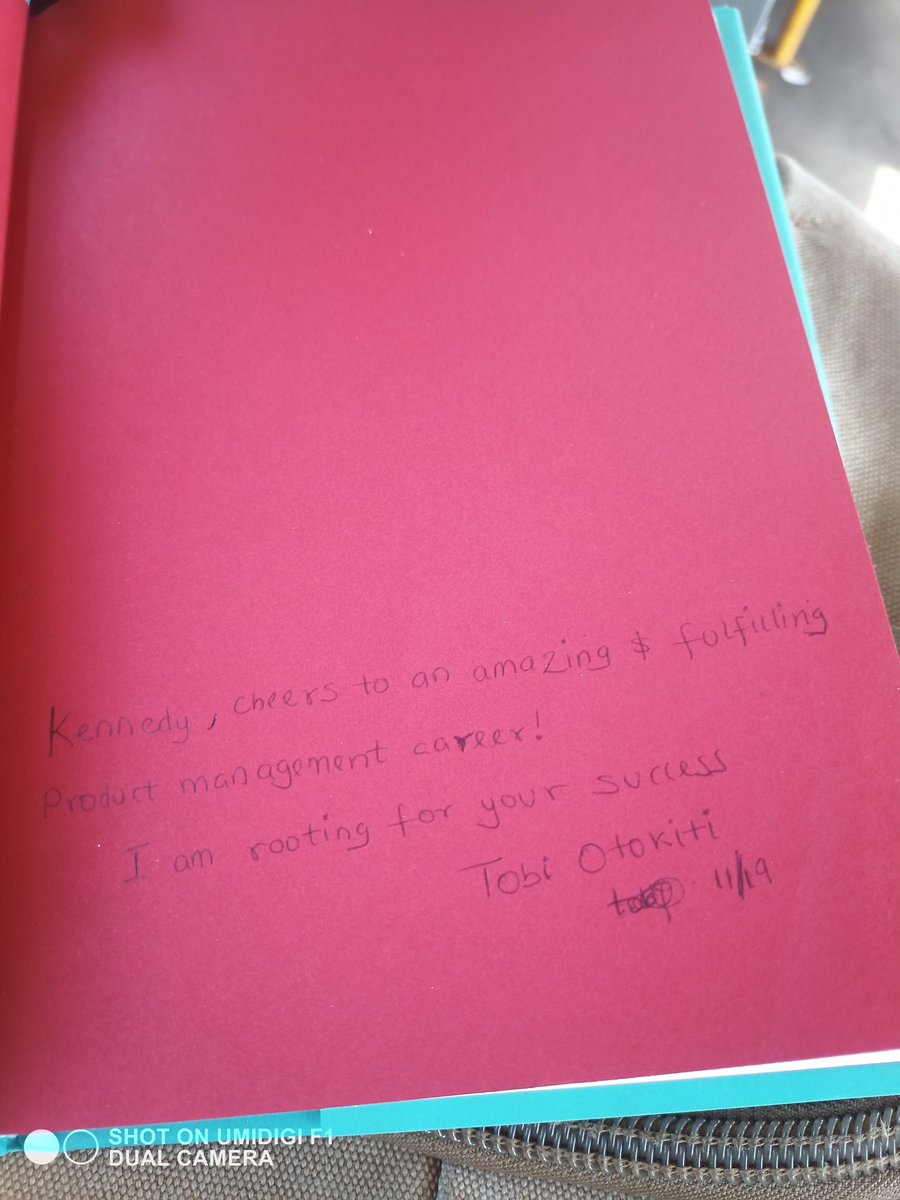 Kennedy, cheers to an amazing & fulfilling
Product management career!
I am rooting for your success
Tobi Otokiti
11/19
SHOT ON UMIDIGI F1
DUAL CAMERA